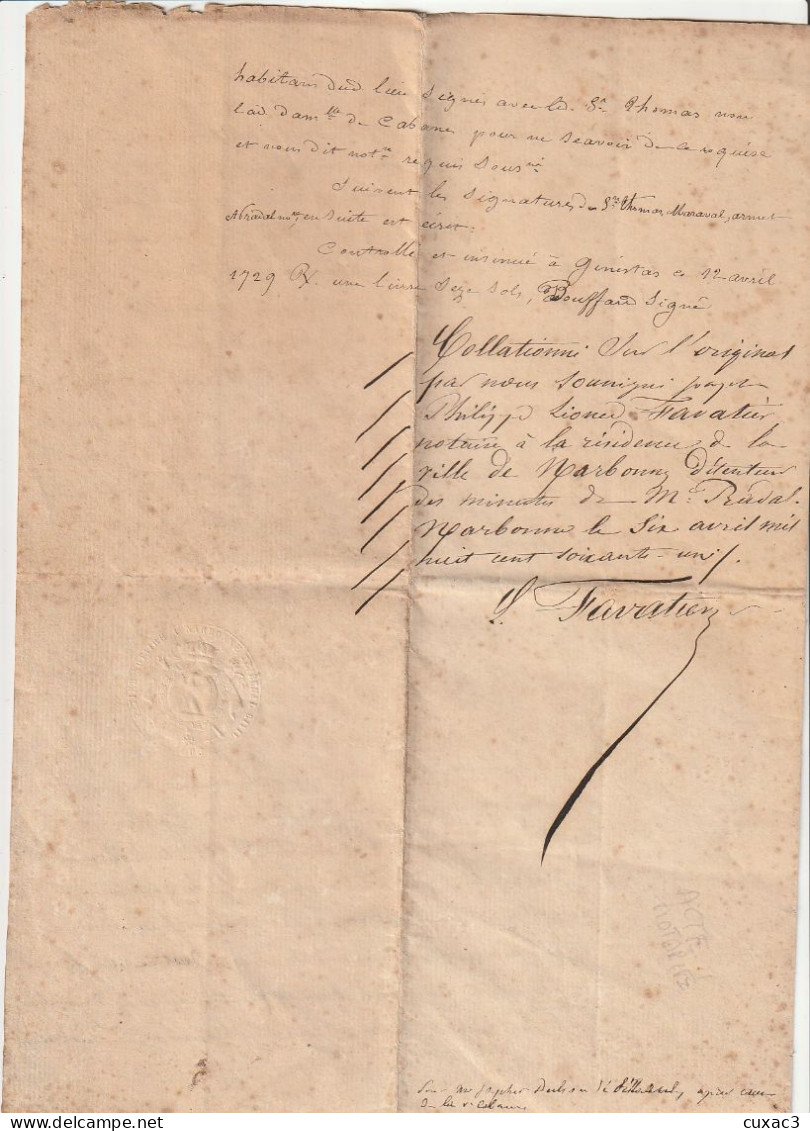 habitans dud lieu signés avec led. Sr. Thomas non
lad dam.lle de Cabanes pour ne scavoir de ce requise
et nous dit not.re requis sous.né
Suivent les signatures de Srs. Thomas, Maraval, armet
Pradal n.re, ensuite est écrit.
Controllé et insinué à Ginestas ce 12 avril
1729 Rx. une livre seze sols, Bouffard signé
Collationné sur l'original
par nous soussigné
Philippe Lionel Favatier
notaire à la résidence de la
ville de Narbonne détenteur
des minutes de Me. Pradal.
Narbonne le six avril mil
huit cent soixante-un /.
L. Favatier
ACTE
NOTARIÉ
de la
CUXAC3